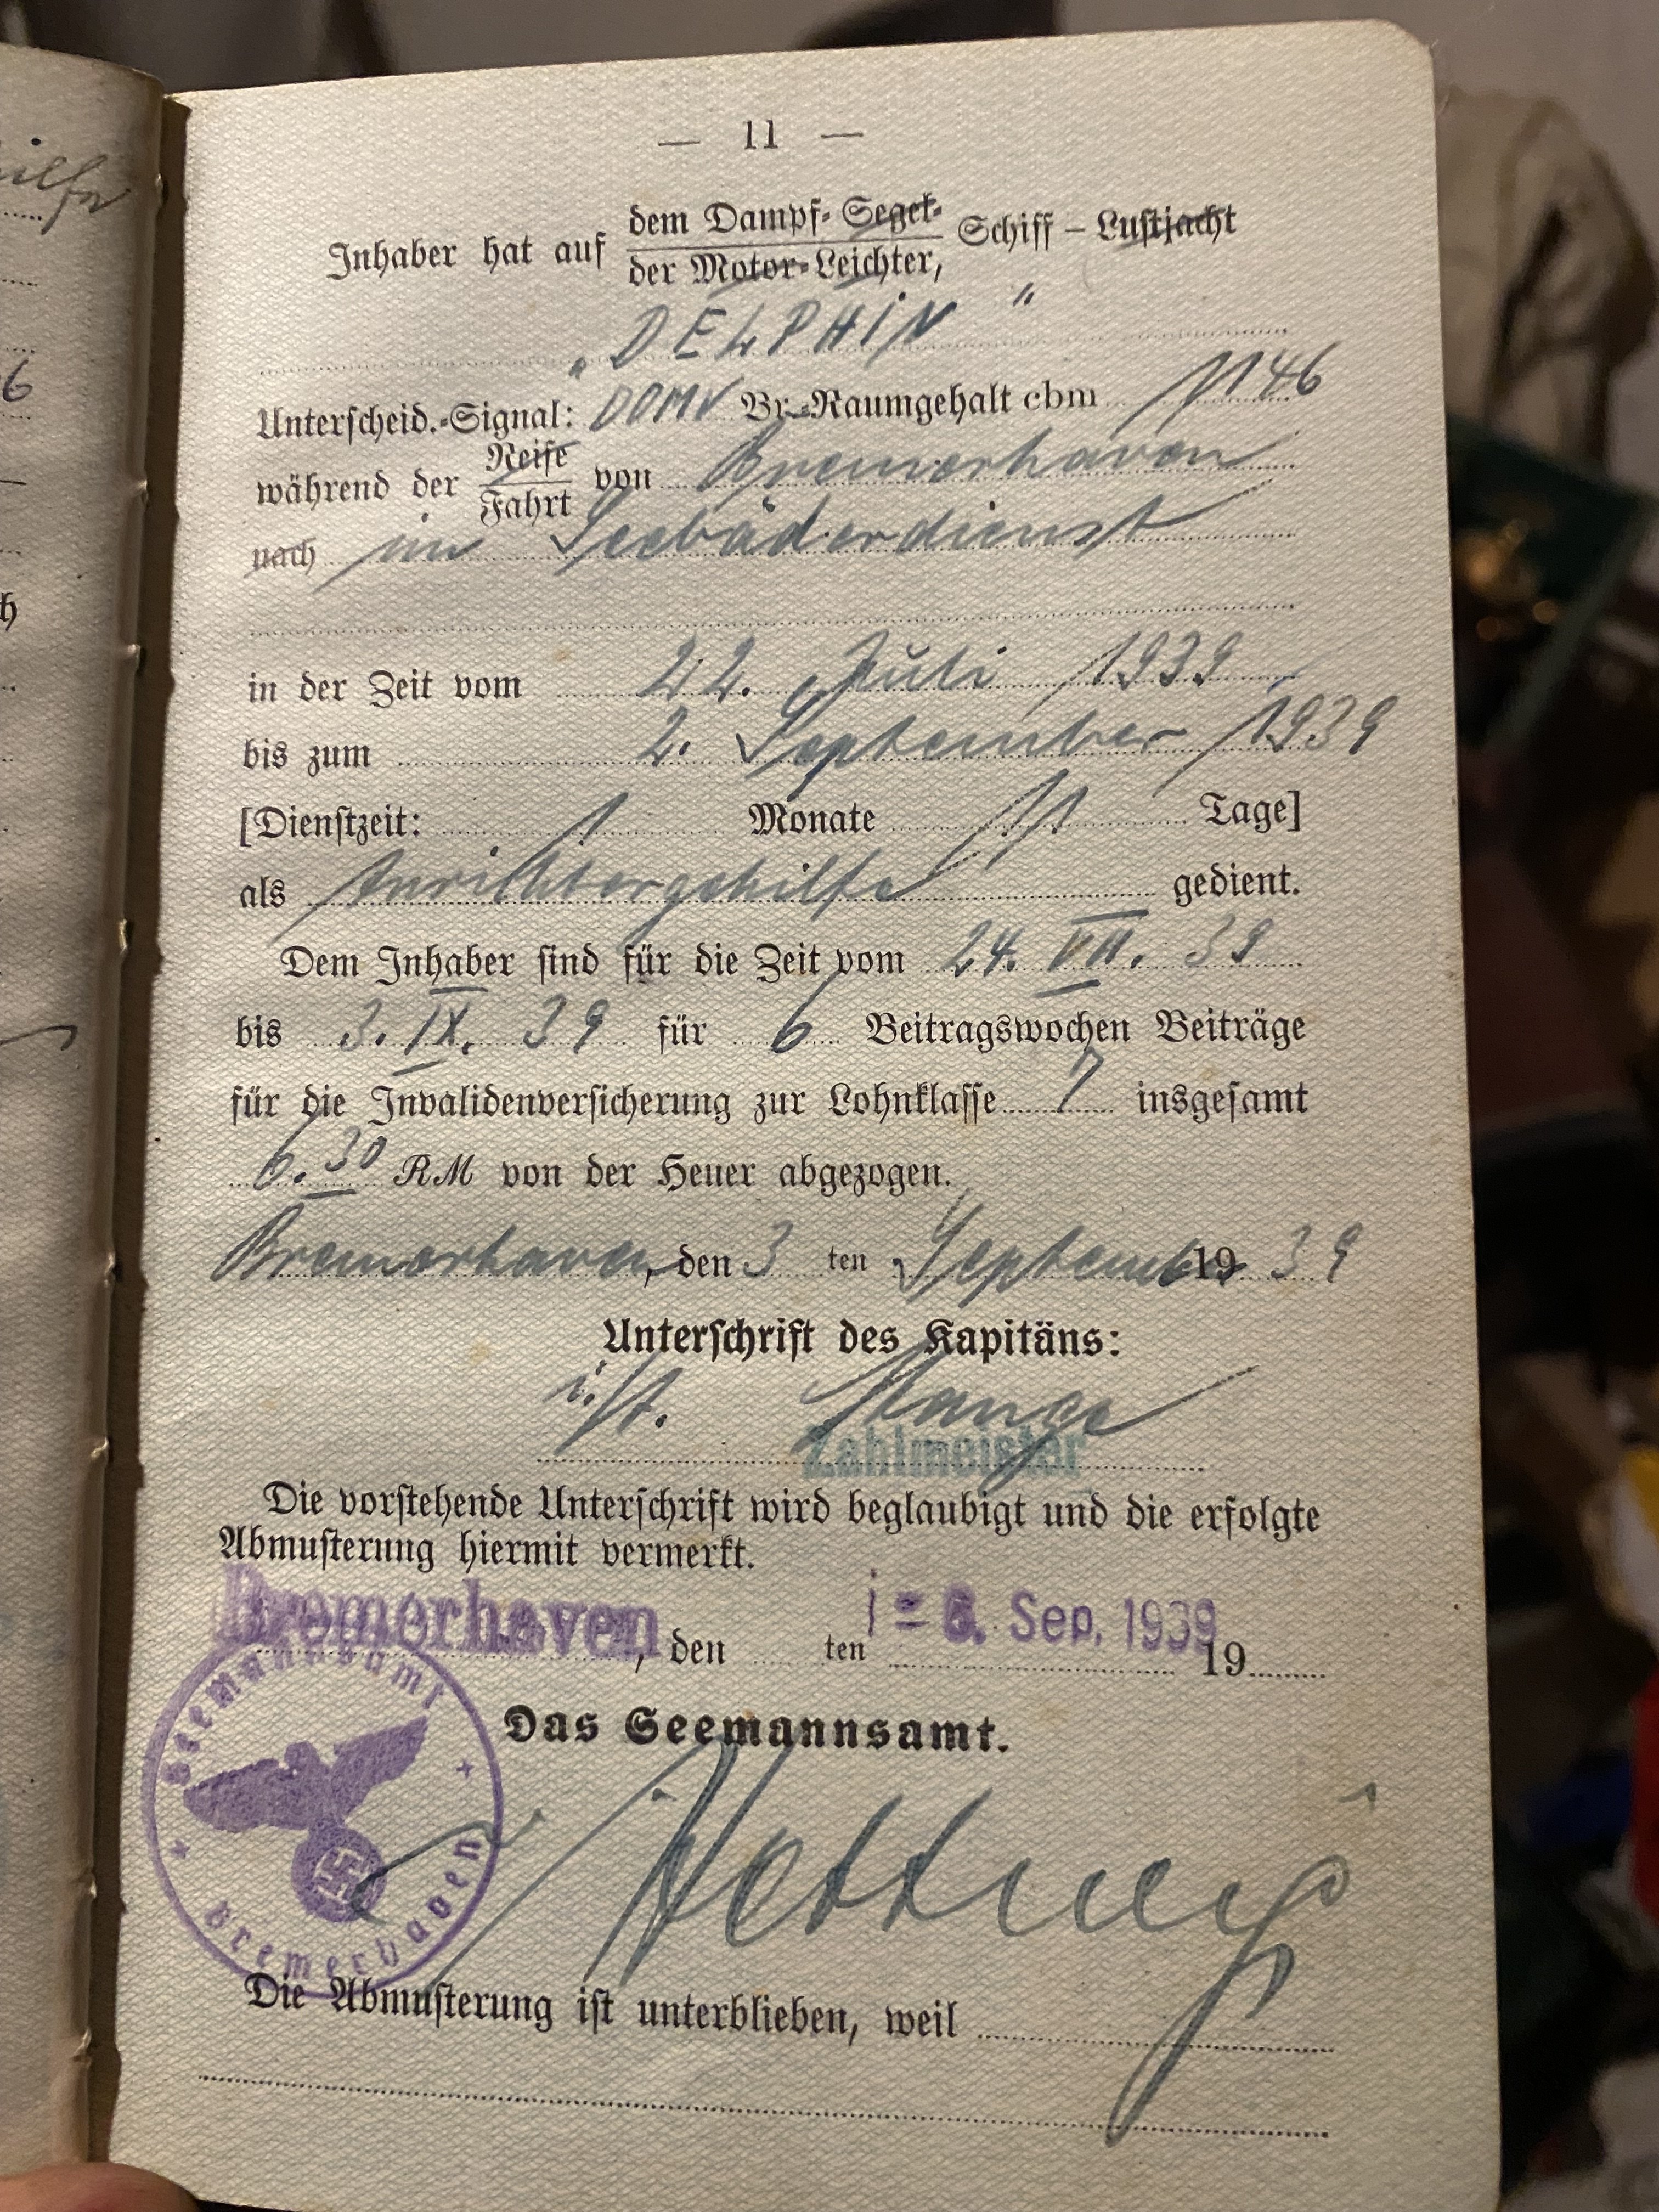 ilfe
6
h
— 11 —
Inhaber hat auf dem Dampf- Segel- Schiff – Lustjacht
der Motor-Leichter,
„DELPHIN"
Unterscheid.-Signal: DOMV Br.-Raumgehalt cbm 1146
während der Reise von Bremerhaven
Fahrt
nach im Seebäderdienst
in der Zeit vom 22. Juli 1939
bis zum 2. September 1939
[Dienstzeit: 1 Monate 11 Tage]
als Anrichtergehilfe gedient.
Dem Inhaber sind für die Zeit vom 24. VII. 39
bis 3. IX. 39 für 6 Beitragswochen Beiträge
für die Invalidenversicherung zur Lohnklasse 7 insgesamt
6.30 RM von der Heuer abgezogen.
Bremerhaven, den 3 ten September 19 39
Unterschrift des Kapitäns:
i.A. Stange
Zahlmeister
Die vorstehende Unterschrift wird beglaubigt und die erfolgte
Abmusterung hiermit vermerkt.
Bremerhaven, den ten Sep. 1939 19
Das Seemannsamt.
Seemannsamt
Bremerhaven
Die Abmusterung ist unterblieben, weil